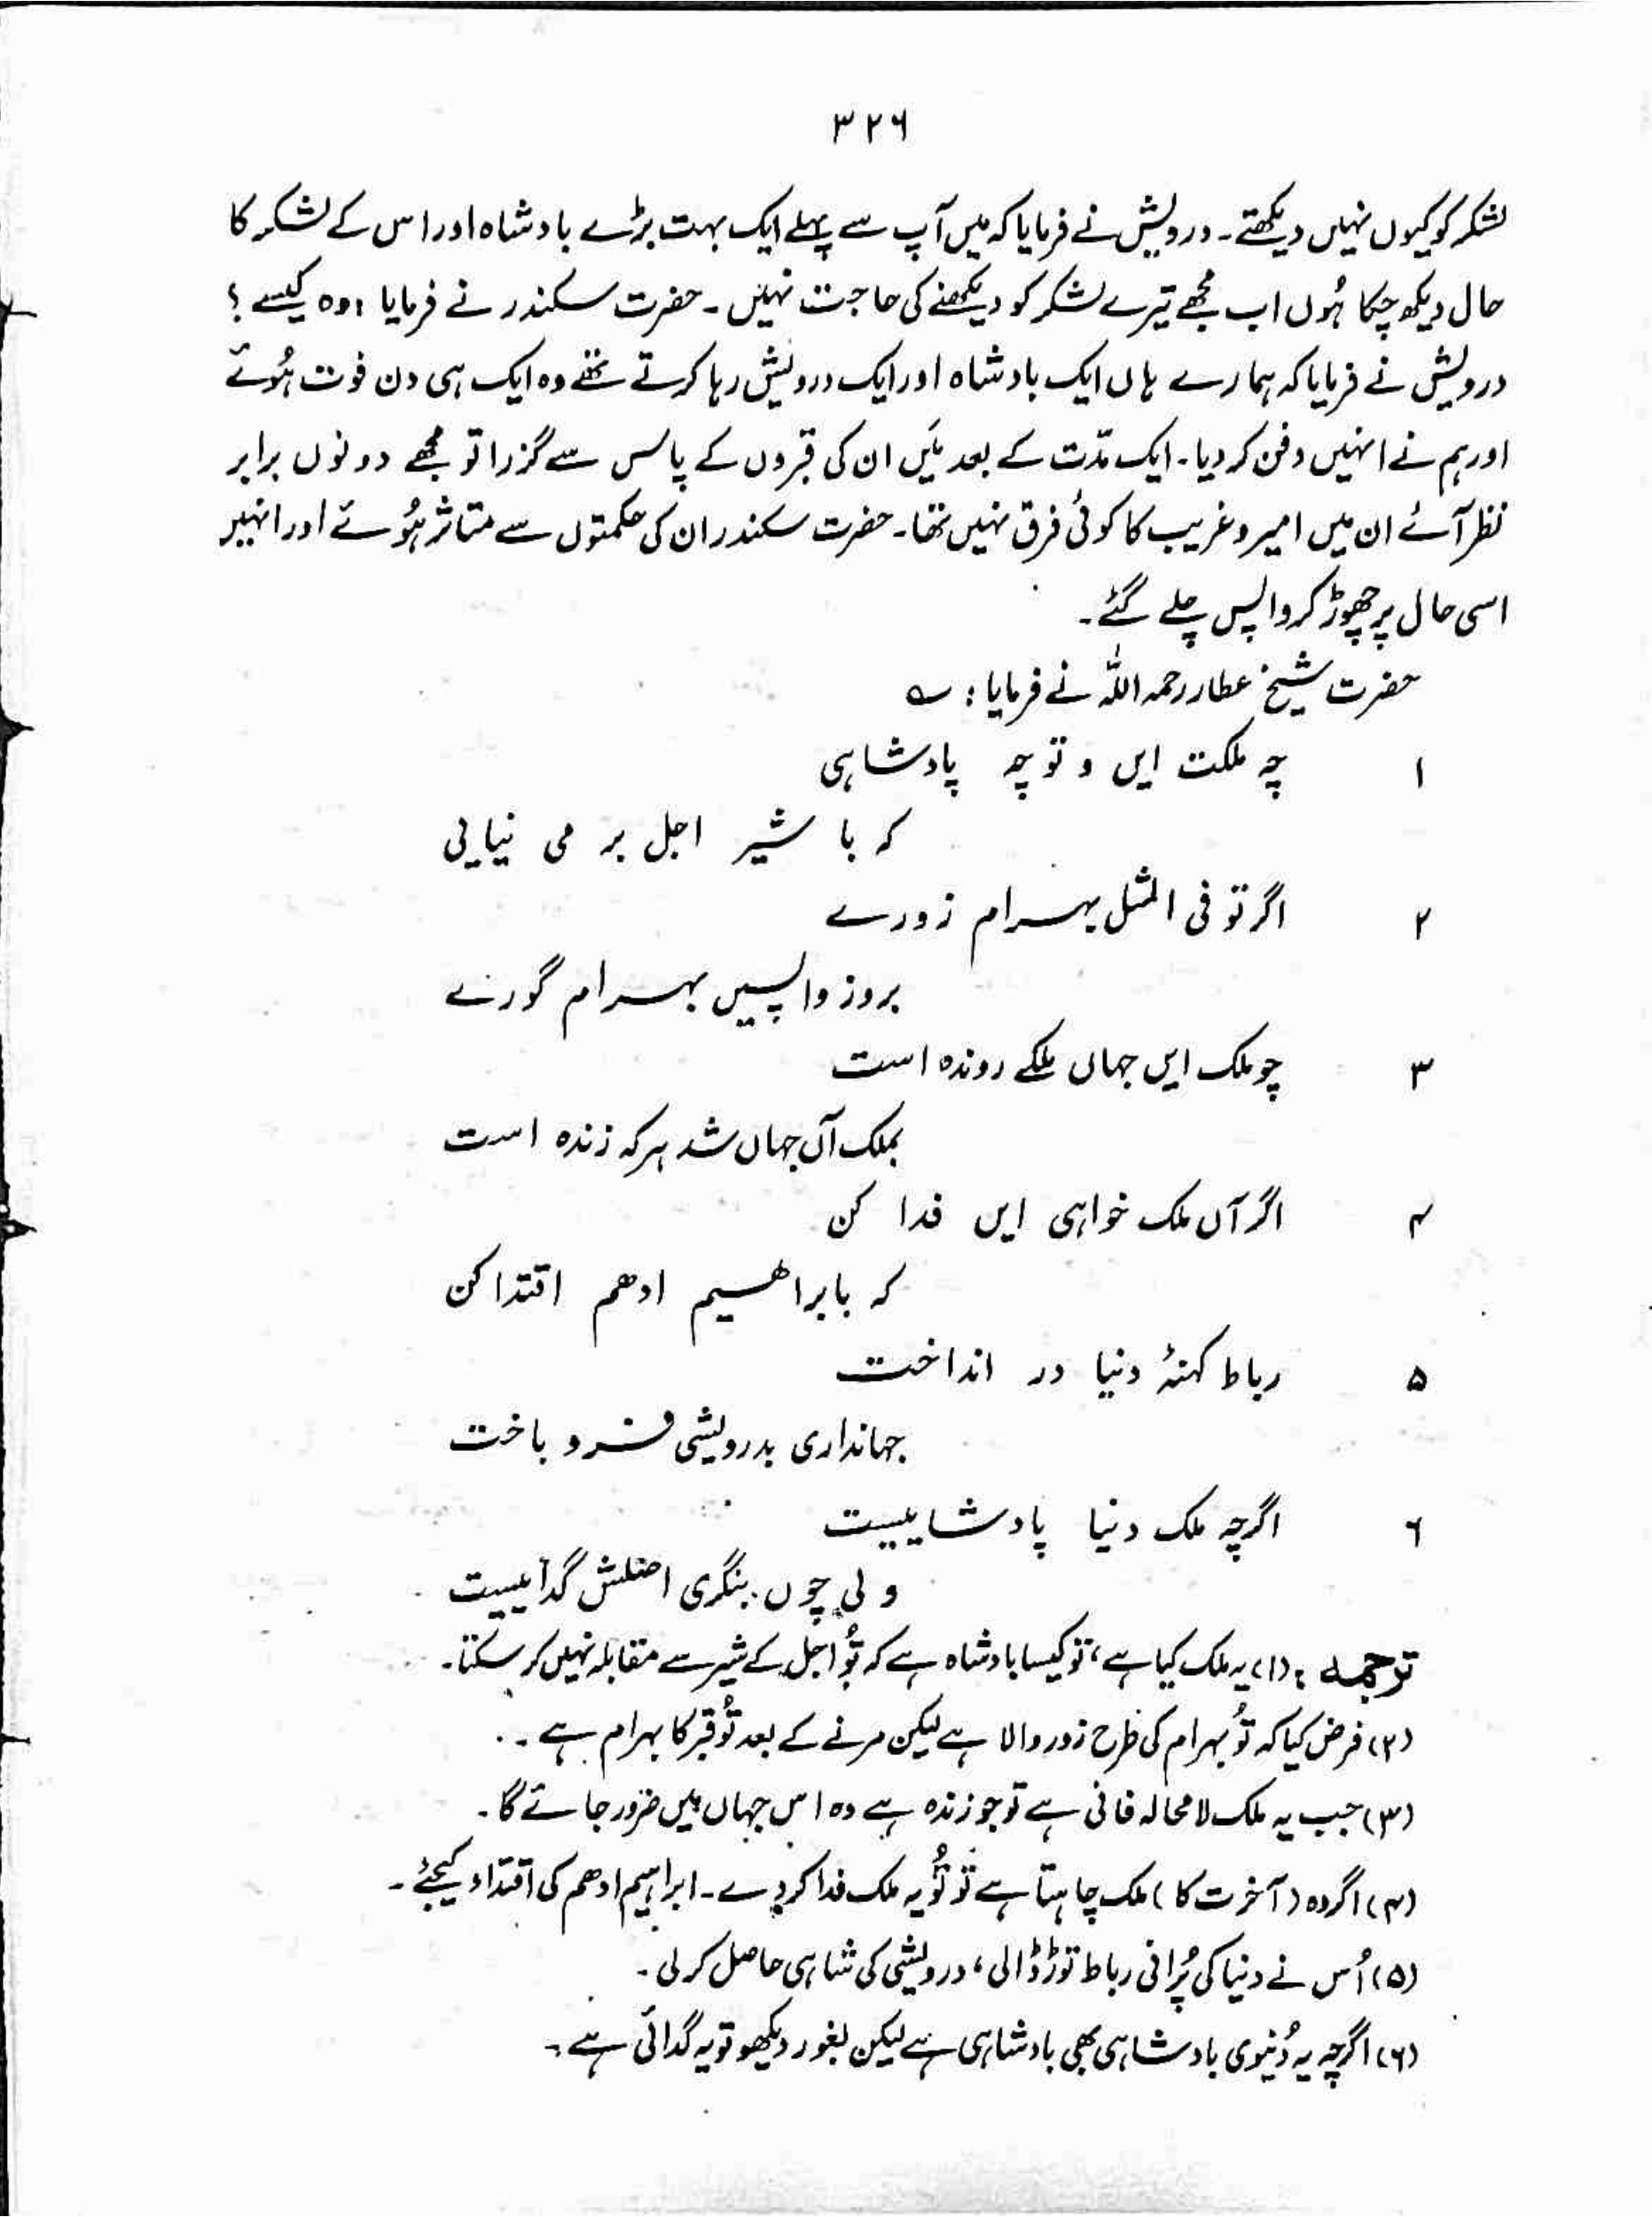 ۳۲۶
لشکر کو کیوں نہیں دیکھتے۔ درویش نے فرمایا کہ میں آپ سے پہلے ایک بہت بڑے بادشاہ اور اس کے لشکر کا
حال دیکھ چکا ہُوں اب مجھے تیرے لشکر کو دیکھنے کی حاجت نہیں۔ حضرت سکندر نے فرمایا، وہ کیسے؟
درویش نے فرمایا کہ ہمارے ہاں ایک بادشاہ اور ایک درویش رہا کرتے تھے وہ ایک ہی دن فوت ہُوئے
اور ہم نے انہیں دفن کر دیا۔ ایک مدّت کے بعد میَں ان کی قبروں کے پاس سے گزرا تو مجھے دونوں برابر
نظر آئے ان میں امیر و غریب کا کوئی فرق نہیں تھا۔ حضرت سکندر ان کی حکمتوں سے متاثر ہُوئے اور انہیں
اسی حال پر چھوڑ کر واپس چلے گئے۔
حضرت شیخ عطار رحمہ اللہ نے فرمایا: ؎
۱ چہ ملکت ایں و تو چہ پادشاہی
کہ با شیر اجل بر می نیایی
۲ اگر تو فی المثل بہرام زورے
بروز واپسیں بہرام گورے
۳ چو ملک ایں جہاں ملکے روندہ است
بملک آں جہاں شد ہر کہ زندہ است
۴ اگر آں ملک خواہی ایں فدا کن
کہ با براھیم ادھم اقتدا کن
۵ رباط کہنۂ دنیا در انداخت
جہانداری بدرویشی فرو باخت
۶ اگرچہ ملک دنیا پادشاہیست
ولی چوں بنگری اصلش گداییست
ترجمہ : (۱) یہ ملک کیا ہے، تو کیسا بادشاہ ہے کہ تُو اجل کے شیر سے مقابلہ نہیں کر سکتا۔
(۲) فرض کیا کہ تُو بہرام کی طرح زور والا ہے لیکن مرنے کے بعد تُو قبر کا بہرام ہے۔
(۳) جب یہ ملک لا محالہ فانی ہے تو جو زندہ ہے وہ اس جہاں میں ضرور جائے گا۔
(۴) اگر وہ (آخرت کا) ملک چاہتا ہے تو تُو یہ ملک فدا کر دے۔ ابراہیم ادھم کی اقتداء کیجئے۔
(۵) اُس نے دنیا کی پُرانی رباط توڑ ڈالی، درویشی کی شاہی حاصل کر لی۔
(۶) اگرچہ یہ دُنیوی بادشاہی بھی بادشاہی ہے لیکن بغور دیکھو تو یہ گدائی ہے۔